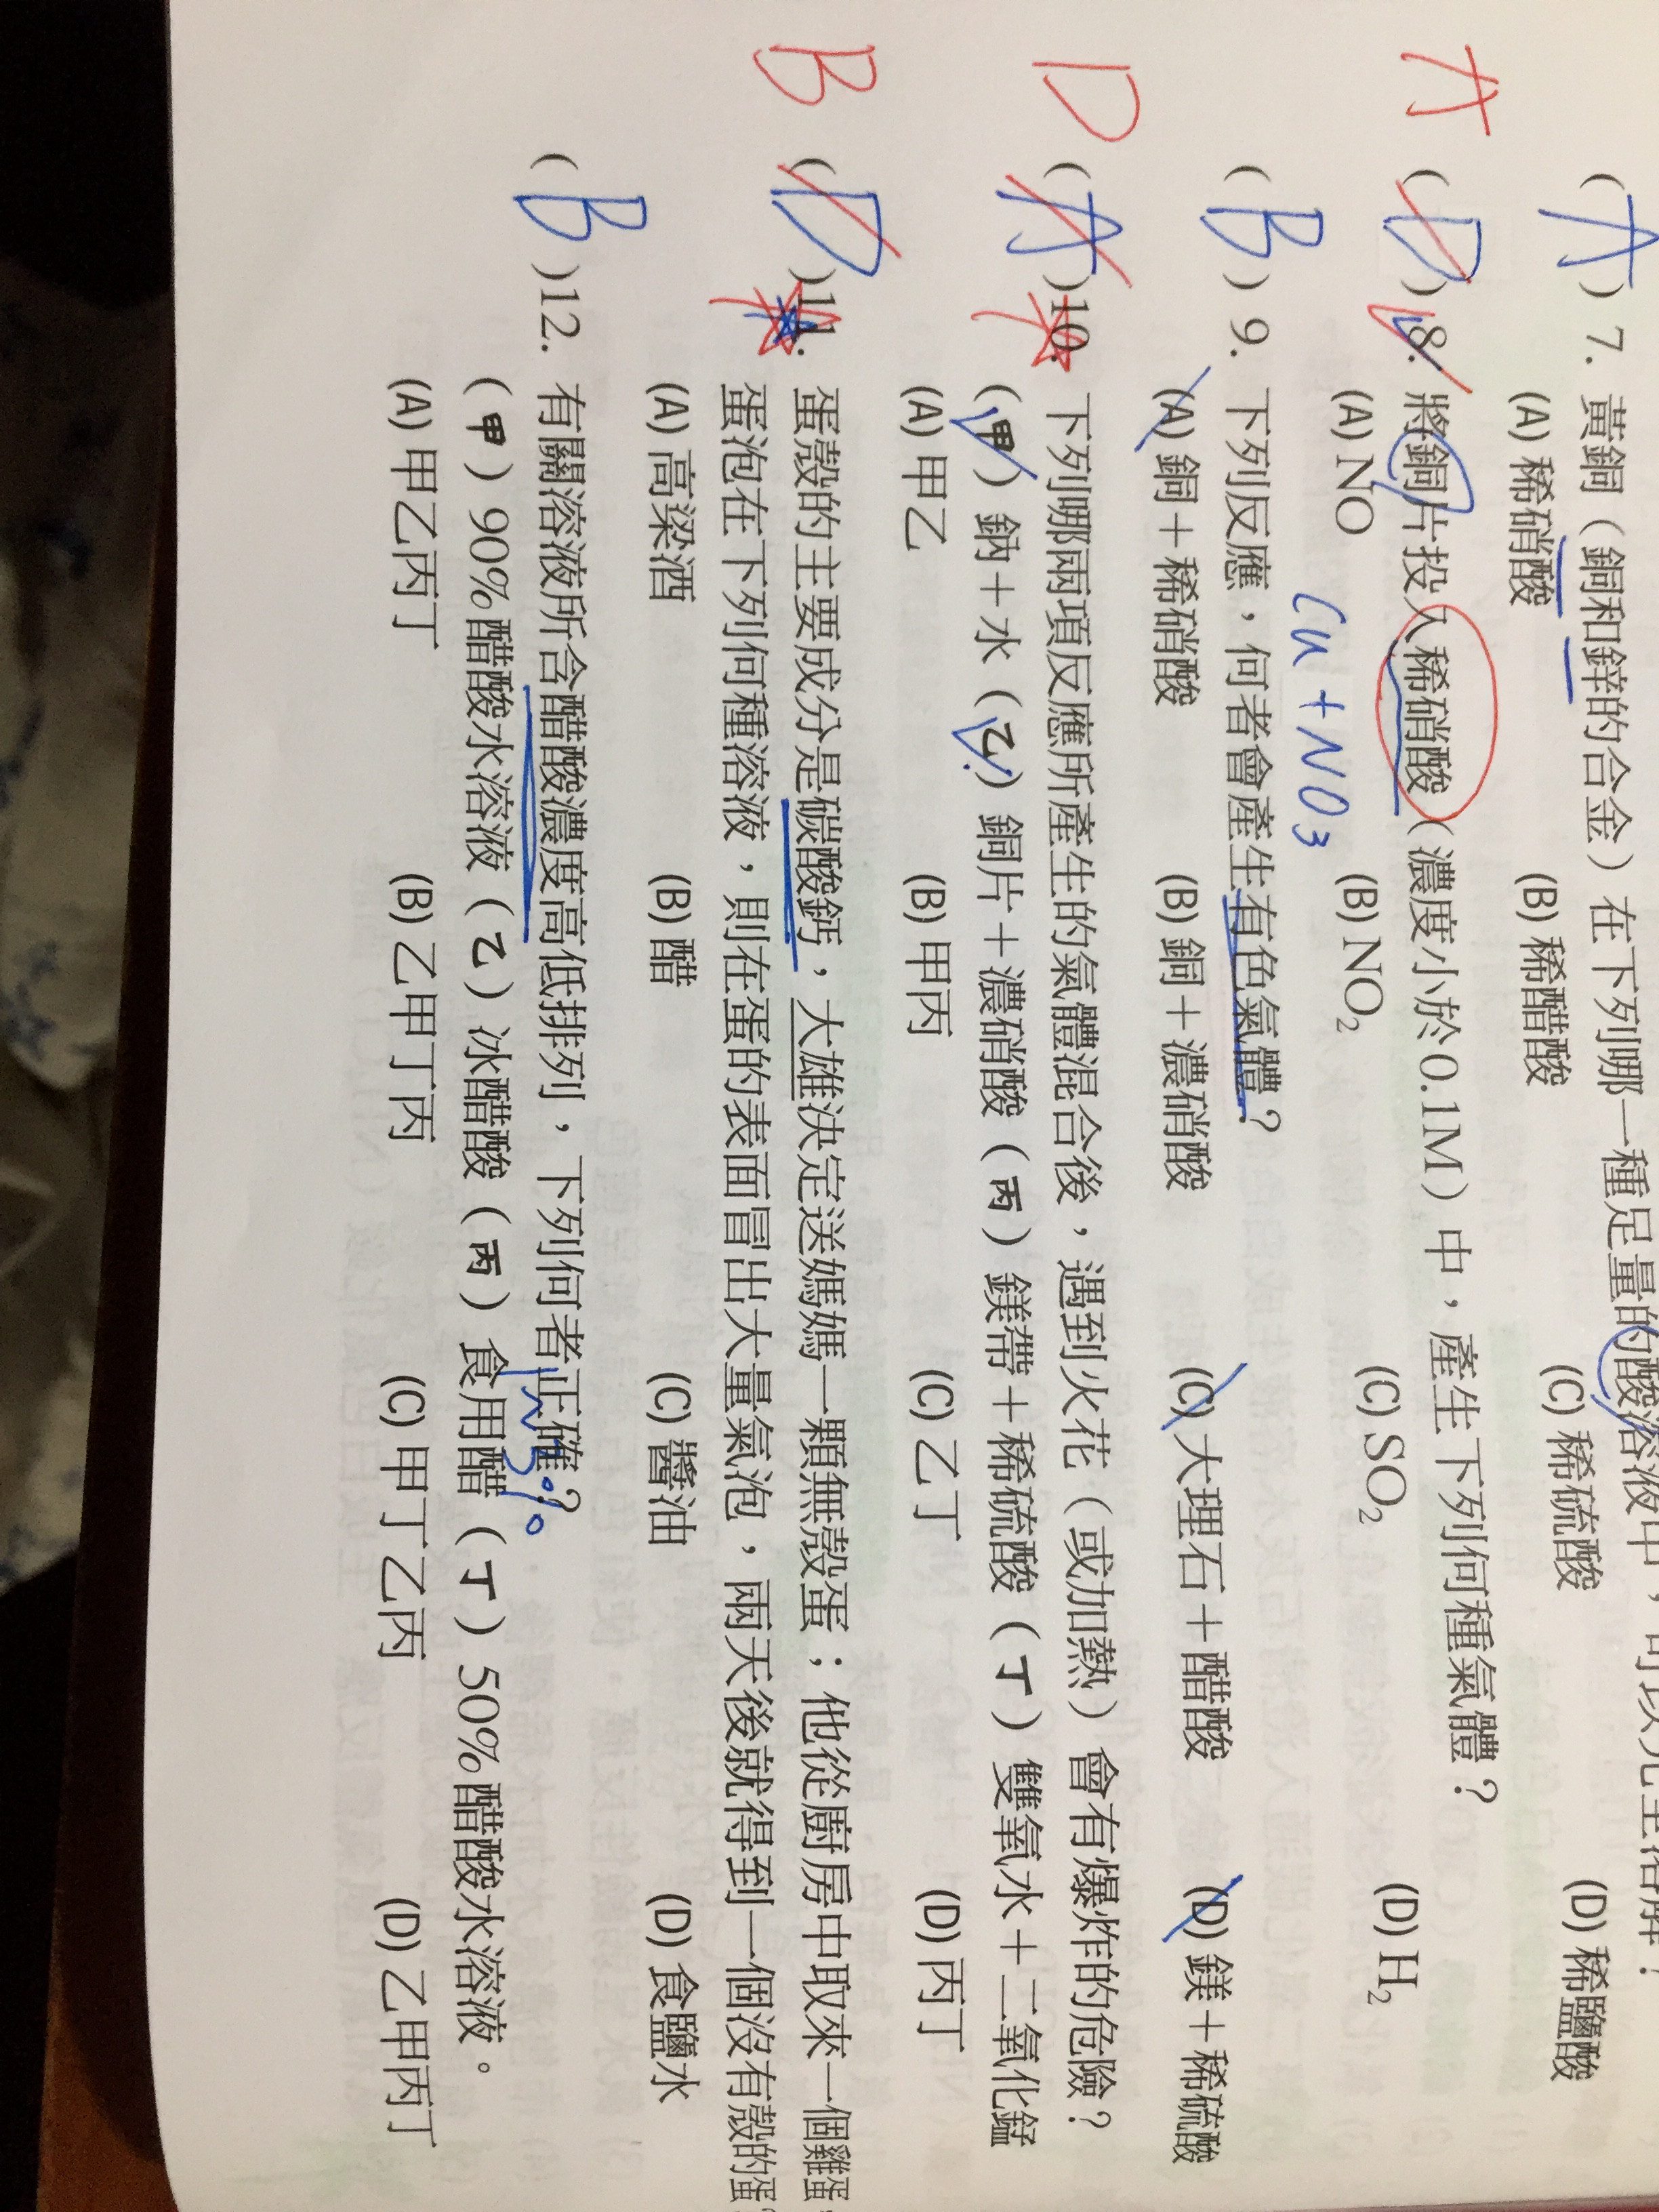 (A) 7. 黃銅（銅和鋅的合金）在下列哪一種足量的酸溶液中，可以完全溶解？
(A) 稀硝酸 (B) 稀醋酸 (C) 稀硫酸 (D) 稀鹽酸
A (D) 8. 將銅片投入稀硝酸（濃度小於0.1M）中，產生下列何種氣體？
(A) NO (B) NO₂ (C) SO₂ (D) H₂
Cu + NO₃
(B) 9. 下列反應，何者會產生有色氣體？
(A) 銅＋稀硝酸 (B) 銅＋濃硝酸 (C) 大理石＋醋酸 (D) 鎂＋稀硫酸
D (A) 10. 下列哪兩項反應所產生的氣體混合後，遇到火花（或加熱）會有爆炸的危險？
（甲）鈉＋水（乙）銅片＋濃硝酸（丙）鎂帶＋稀硫酸（丁）雙氧水＋二氧化錳
(A) 甲乙 (B) 甲丙 (C) 乙丁 (D) 丙丁
B (D) 11. 蛋殼的主要成分是碳酸鈣，大雄決定送媽媽一顆無殼蛋；他從廚房中取來一個雞蛋
蛋泡在下列何種溶液，則在蛋的表面冒出大量氣泡，兩天後就得到一個沒有殼的蛋
(A) 高梁酒 (B) 醋 (C) 醬油 (D) 食鹽水
(B) 12. 有關溶液所含醋酸濃度高低排列，下列何者正確？
（甲）90%醋酸水溶液（乙）冰醋酸（丙）食用醋（丁）50%醋酸水溶液。
(A) 甲乙丙丁 (B) 乙甲丁丙 (C) 甲丁乙丙 (D) 乙甲丙丁